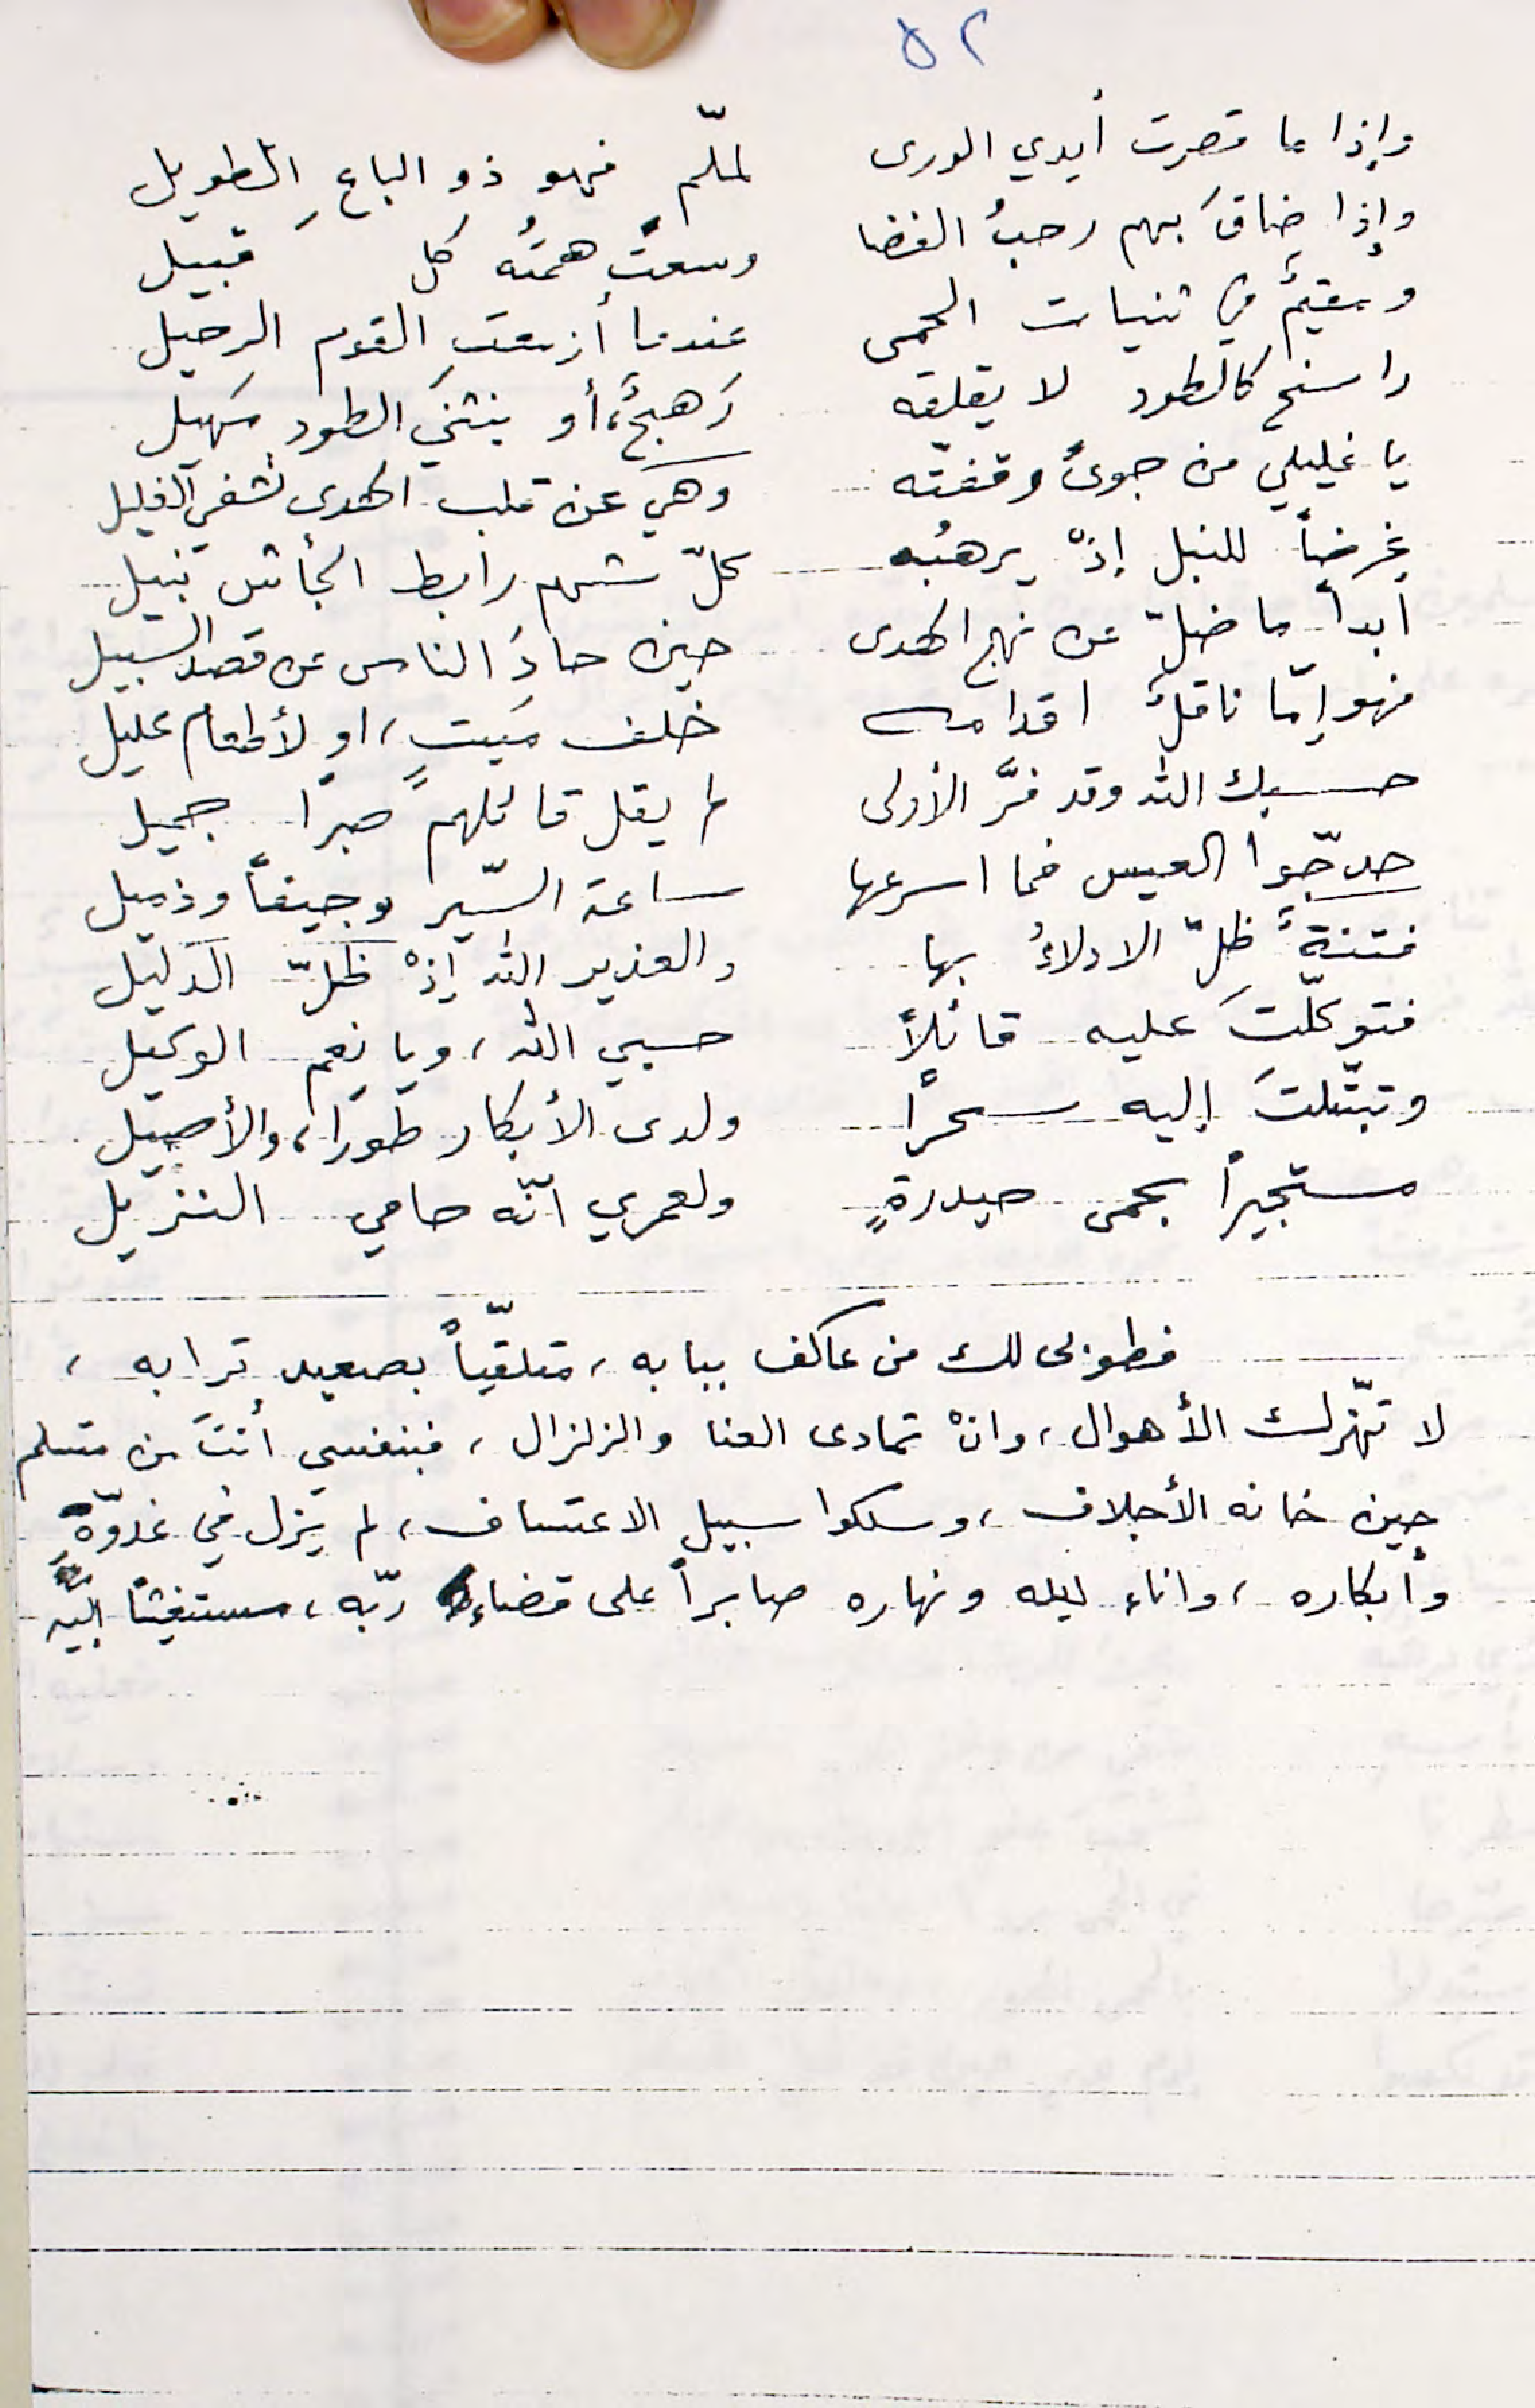 ٥٢
وإذا ما قصرت أيدي الورى لملّم فهو ذو الباعِ الطويل
وإذا ضاقَ بهم رحبُ الفضا وسعتْ همتُه كل قبيل
ومقيمٌ في ثنيات الحمى عندما أزمعتِ القوم الرحيل
راسخ كالطود لا يقلقه رَهجٌ، أو ينثني الطود مَهيل
يا غليلي من جوىً وقفته وهي عن قلب الهدى تشفي الغليل
غرضاً للنبل إذْ يرهبُه كلّ شهم رابط الجأش نبيل
ابداً ما ضلّ عن نهج الهدى حين حادَ الناس عن قصد السبيل
فهو إمّا ناقلٌ اقدامه خلف مَيتٍ، او لأطعام عليل
حسبك الله وقد فرَّ الأولى لم يقل قائلهم صبرًا جميل
حدجّوا العيس فما اسرعها ساعة السّير وجيفاً وذميل
فتنةٌ ظلّ الادلاءُ بها والعذير الله إذْ ظلّ الدليل
فتوكلّتَ عليه قائلاً حسبي الله، ويا نِعم الوكيل
وتبتّلتَ إليه سحرًا ولدى الأبكار طورا، والأصيل
مستجيراً بحمى حيدرةٍ ولعمري انّه حامي النزيل
فطوبى لك من عاكف ببابه، متلقّياً بصعيد ترابه،
لا تهّزلك الأهوال، وانْ تمادى العنا والزلزال، فبنفسي أنتَ من مسلم
حين خانه الأجلاف، وسلكوا سبيل الاعتساف، لم يزل في غدوّهِ
وأبكاره، واناء ليله ونهاره صابراً على قضاء ربّه، مستغيثاً إليه